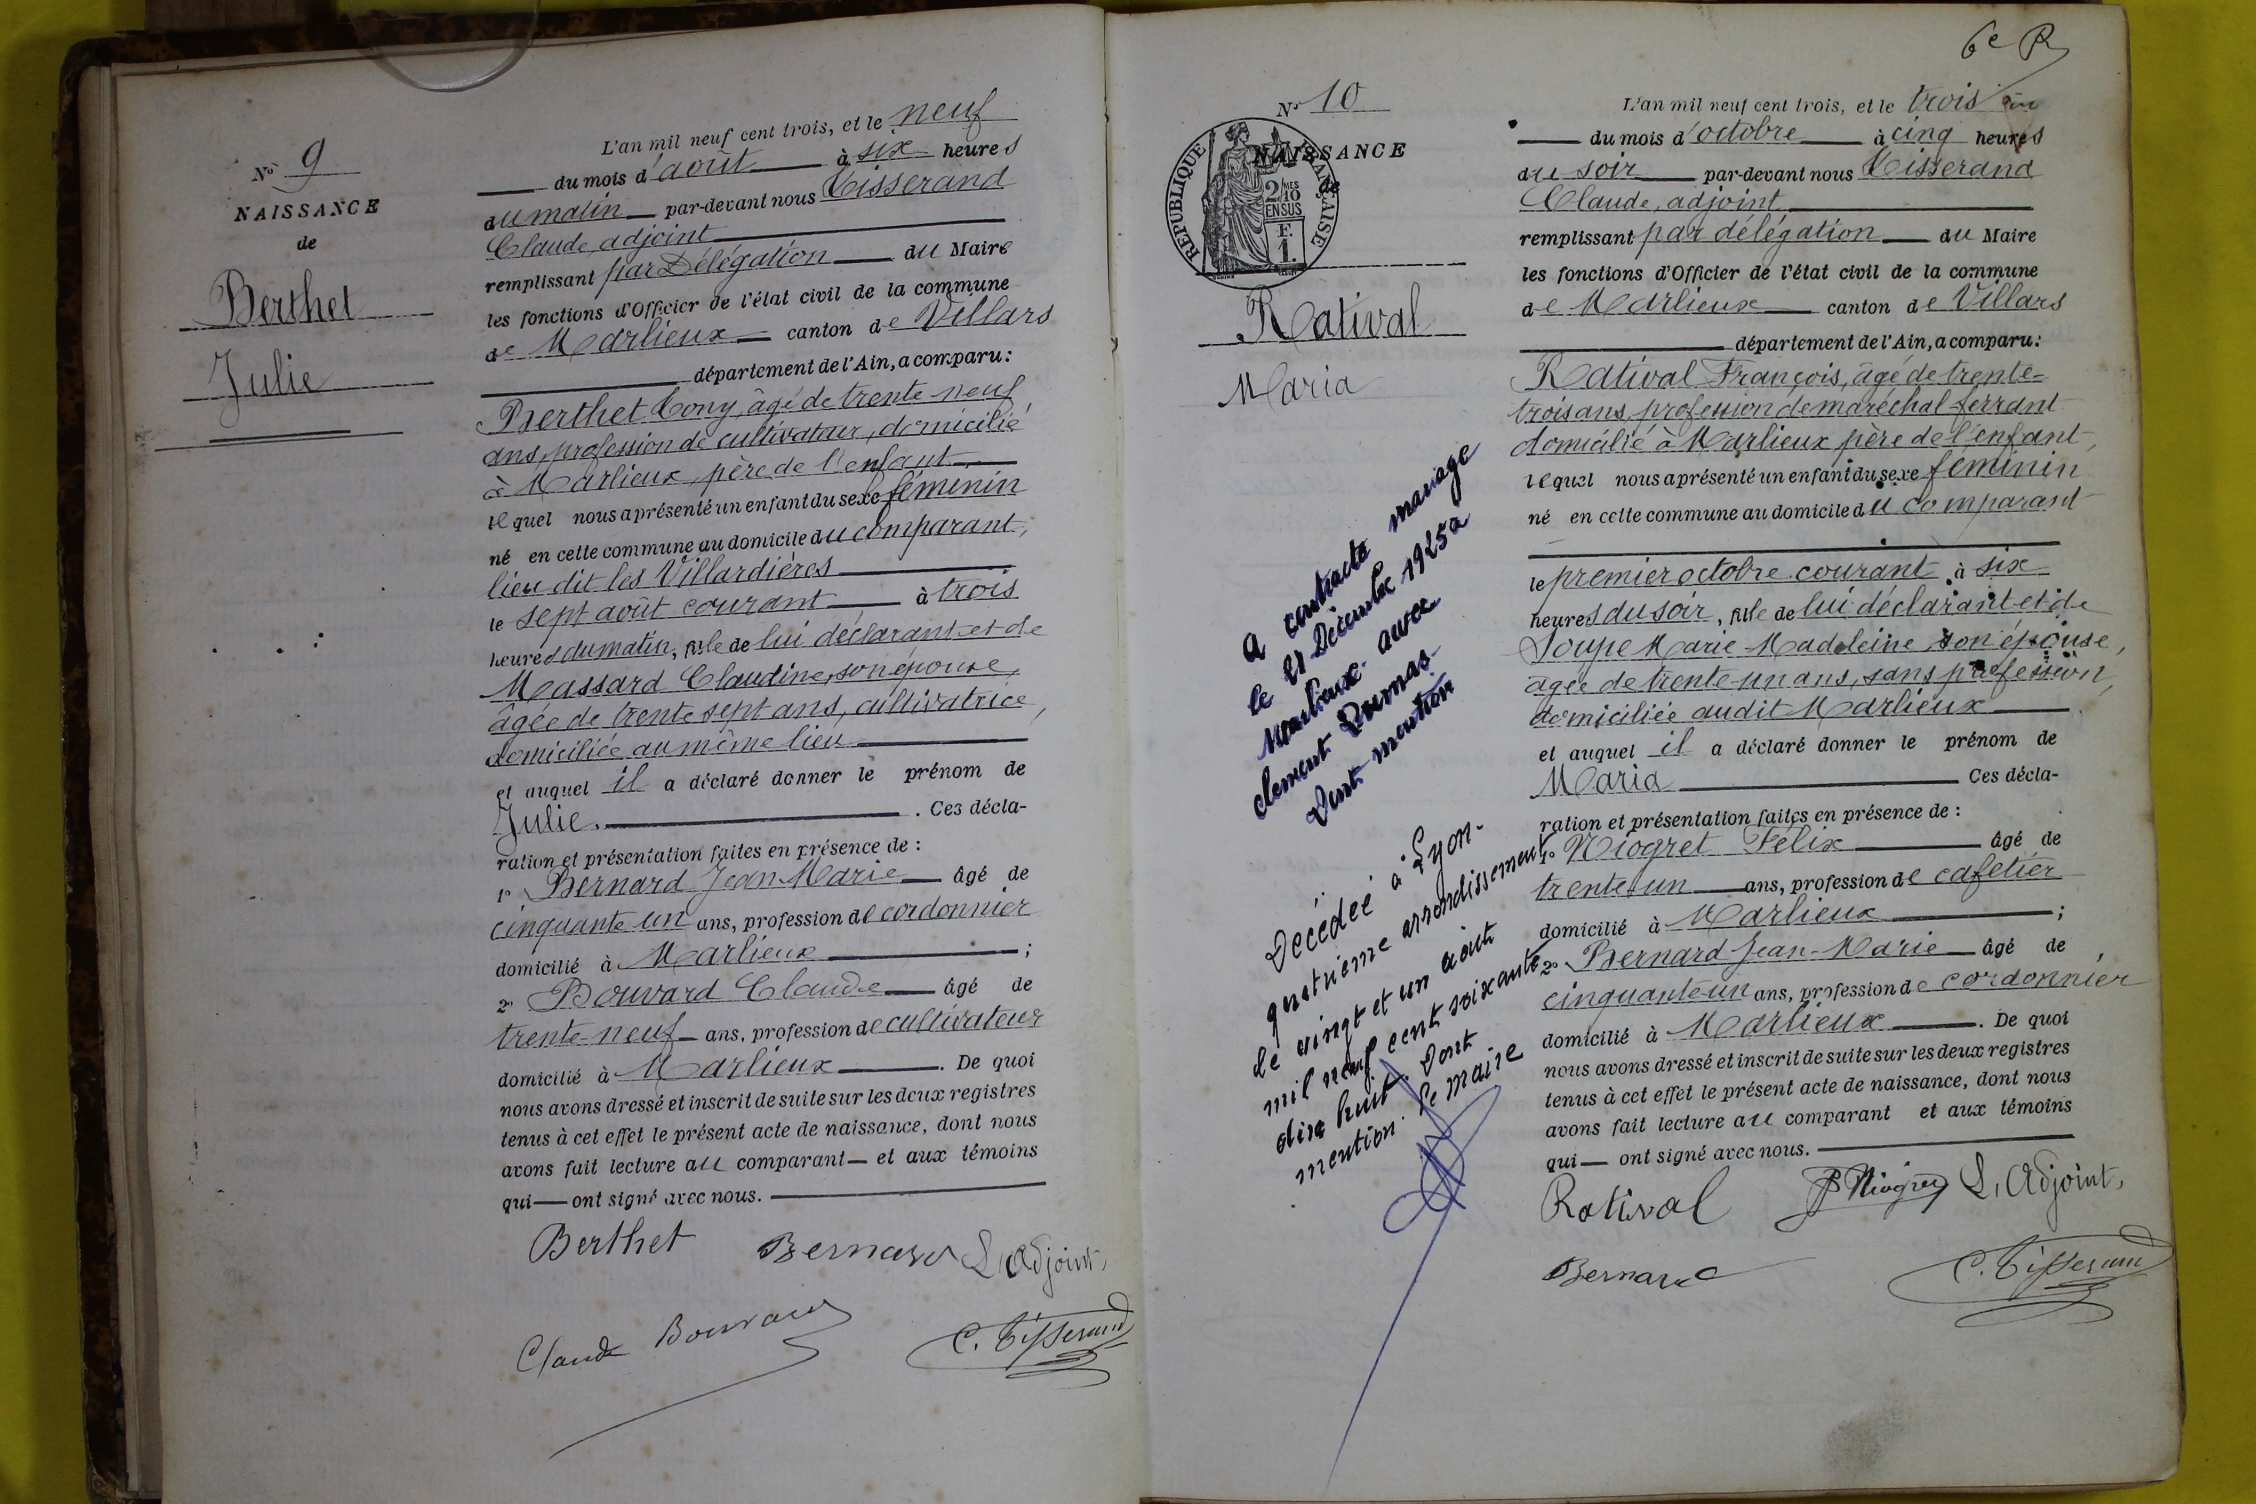 N° 9
NAISSANCE
de
Berthet
Julie
L'an mil neuf cent trois, et le neuf
du mois d'août à six heures
du matin par-devant nous Tisserand
Claude, adjoint
remplissant par Délégation du Maire
les fonctions d'Officier de l'état civil de la commune
de Marlieux canton de Villars
département de l'Ain, a comparu:
Berthet Tony, âgé de trente neuf
ans, profession de cultivateur, domicilié
à Marlieux, père de l'enfant
lequel nous a présenté un enfant du sexe féminin
né en cette commune au domicile du comparant,
lieu dit les Villardières
le sept août courant à trois
heures du matin, fille de lui déclarant et de
Massard Claudine, son épouse,
âgée de trente sept ans, cultivatrice,
domiciliée au même lieu
et auquel il a déclaré donner le prénom de
Julie. . Ces décla-
ration et présentation faites en présence de :
1° Bernard Jean Marie âgé de
cinquante un ans, profession de cordonnier
domicilié à Marlieux ;
2° Bouvard Claude âgé de
trente-neuf ans, profession de cultivateur
domicilié à Marlieux . De quoi
nous avons dressé et inscrit de suite sur les deux registres
tenus à cet effet le présent acte de naissance, dont nous
avons fait lecture au comparant et aux témoins
qui ont signé avec nous.
Berthet Bernard L'Adjoint,
Claude Bouvard C. Tisserand
6e R
N° 10
NAISSANCE
de
RÉPUBLIQUE FRANÇAISE
2/10 MES
EN SUS
F.
1.
Ratival
Maria
a contracté mariage
le 21 Décembre 1925 à
Marlieux avec
clement
Dont mention
Décédée à Lyon-
quatrième arrondissement
le vingt et un août
mil neuf cent soixante
dix huit. Dont
mention. le maire
L'an mil neuf cent trois, et le trois
du mois d'octobre à cinq heures
du soir par-devant nous Tisserand
Claude, adjoint
remplissant par délégation du Maire
les fonctions d'Officier de l'état civil de la commune
de Marlieux canton de Villars
département de l'Ain, a comparu:
Ratival François, âgé de trente-
trois ans, profession de maréchal-ferrant
domicilié à Marlieux père de l'enfant,
lequel nous a présenté un enfant du sexe féminin
né en cette commune au domicile du comparant
le premier octobre courant à six
heures du soir, fille de lui déclarant et de
Soupe Marie-Madeleine son épouse,
âgée de trente-un ans, sans profession,
domiciliée audit Marlieux
et auquel il a déclaré donner le prénom de
Maria Ces décla-
ration et présentation faites en présence de :
1° Niogret Félix âgé de
trente-un ans, profession de cafetier
domicilié à Marlieux ;
2° Bernard Jean-Marie âgé de
cinquante-un ans, profession de cordonnier
domicilié à Marlieux . De quoi
nous avons dressé et inscrit de suite sur les deux registres
tenus à cet effet le présent acte de naissance, dont nous
avons fait lecture au comparant et aux témoins
qui ont signé avec nous.
Ratival Niogret L'Adjoint,
Bernard C. Tisserand